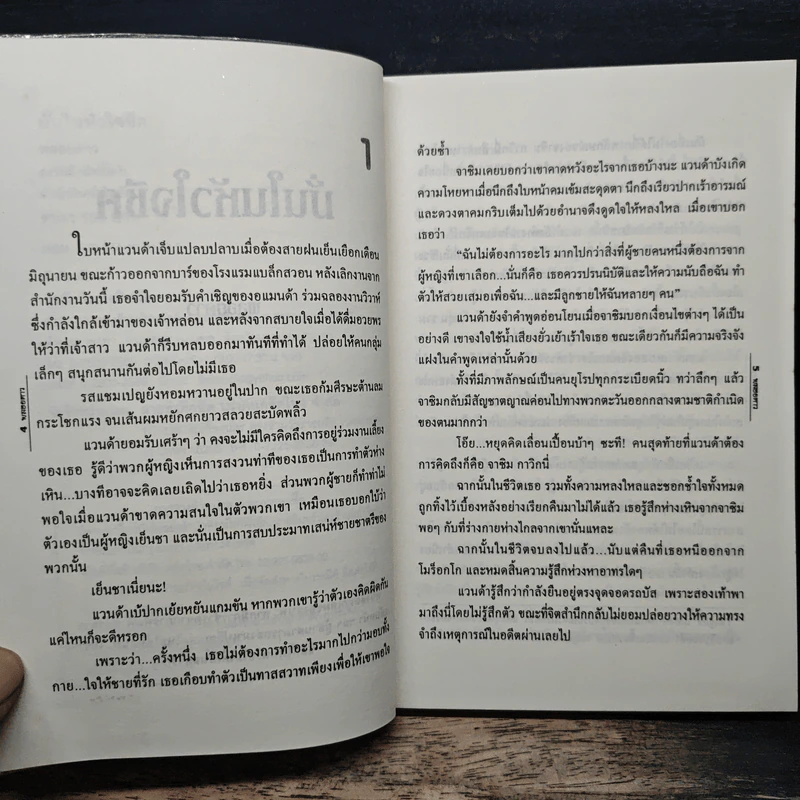 ๑
ใบหน้าแวนด้าเจ็บแปลบปลาบเมื่อต้องสายฝนเย็นเยือกเดือน
มิถุนายน ขณะก้าวออกจากบาร์ของโรงแรมแบล็กสวอน หลังเลิกงานจาก
สำนักงานวันนี้ เธอจำใจยอมรับคำเชิญของอแมนด้า ร่วมฉลองงานวิวาห์
ซึ่งกำลังใกล้เข้ามาของเจ้าหล่อน และหลังจากสบายใจเมื่อได้ดื่มอวยพร
ให้ว่าที่เจ้าสาว แวนด้าก็รีบหลบออกมาทันทีที่ทำได้ ปล่อยให้คนกลุ่ม
เล็กๆ สนุกสนานกันต่อไปโดยไม่มีเธอ
รสแชมเปญยังหอมหวานอยู่ในปาก ขณะเธอก้มศีรษะต้านลม
กระโชกแรง จนเส้นผมหยักศกยาวสลวยสะบัดพลิ้ว
แวนด้ายอมรับเศร้าๆ ว่า คงจะไม่มีใครคิดถึงการอยู่ร่วมงานเลี้ยง
ของเธอ รู้ดีว่าพวกผู้หญิงเห็นการสงวนท่าทีของเธอเป็นการทำตัวห่าง
เหิน...บางทีอาจจะคิดเลยเถิดไปว่าเธอหยิ่ง ส่วนพวกผู้ชายก็ทำท่าไม่
พอใจเมื่อแวนด้าขาดความสนใจในตัวพวกเขา เหมือนเธอบอกใบ้ว่า
ตัวเองเป็นผู้หญิงเย็นชา และนั่นเป็นการสบประมาทเสน่ห์ชายชาตรีของ
พวกนั้น
เย็นชาเนี่ยนะ!
แวนด้าเบ้ปากเย้ยหยันแกมขัน หากพวกเขารู้ว่าตัวเองคิดผิดกัน
แค่ไหนก็จะดีหรอก
เพราะว่า...ครั้งหนึ่ง เธอไม่ต้องการทำอะไรมากไปกว่ามอบทั้ง
กาย...ใจให้ชายที่รัก เธอเกือบทำตัวเป็นทาสสวาทเพียงเพื่อให้เขาพอใจ
4 จอมอหังการ์
ด้วยซ้ำ
จาซิมเคยบอกว่าเขาคาดหวังอะไรจากเธอบ้างนะ แวนด้าบังเกิด
ความโหยหาเมื่อนึกถึงใบหน้าคมเข้มสะดุดตา นึกถึงเรียวปากเร้าอารมณ์
และดวงตาคมกริบเต็มไปด้วยอำนาจดึงดูดใจให้หลงใหล เมื่อเขาบอก
เธอว่า
“ฉันไม่ต้องการอะไร มากไปกว่าสิ่งที่ผู้ชายคนหนึ่งต้องการจาก
ผู้หญิงที่เขาเลือก...นั่นก็คือ เธอควรปรนนิบัติและให้ความนับถือฉัน ทำ
ตัวให้สวยเสมอเพื่อฉัน...และมีลูกชายให้ฉันหลายๆ คน”
แวนด้ายังจำคำพูดอ่อนโยนเมื่อจาซิมบอกเงื่อนไขต่างๆ ได้เป็น
อย่างดี เขาจงใจใช้น้ำเสียงยั่วเย้าเร้าใจเธอ ขณะเดียวกันก็มีความจริงจัง
แฝงในคำพูดเหล่านั้นด้วย
ทั้งที่มีภาพลักษณ์เป็นคนยุโรปทุกกระเบียดนิ้ว ทว่าลึกๆ แล้ว
จาซิมกลับมีสัญชาตญาณค่อนไปทางพวกตะวันออกกลางตามชาติกำเนิด
ของตนมากกว่า
โอ๊ย...หยุดคิดเลื่อนเปื้อนบ้าๆ ซะที! คนสุดท้ายที่แวนด้าต้อง
การคิดถึงก็คือ จาซิม กาวิกนี่
ฉากนั้นในชีวิตเธอ รวมทั้งความหลงใหลและชอกช้ำใจทั้งหมด
ถูกทิ้งไว้เบื้องหลังอย่างเรียกคืนมาไม่ได้แล้ว เธอรู้สึกห่างเหินจากจาซิม
พอๆ กับที่ร่างกายห่างไกลจากเขานั่นแหละ
ฉากนั้นในชีวิตจบลงไปแล้ว...นับแต่คืนที่เธอหนีออกจาก
โมร็อกโก และหมดสิ้นความรู้สึกห่วงหาอาทรใดๆ
แวนด้ารู้สึกว่ากำลังยืนอยู่ตรงจุดจอดรถบัส เพราะสองเท้าพา
มาถึงนี่โดยไม่รู้สึกตัว ขณะที่จิตสำนึกกลับไม่ยอมปล่อยวางให้ความทรง
จำถึงเหตุการณ์ในอดีตผ่านเลยไป
5